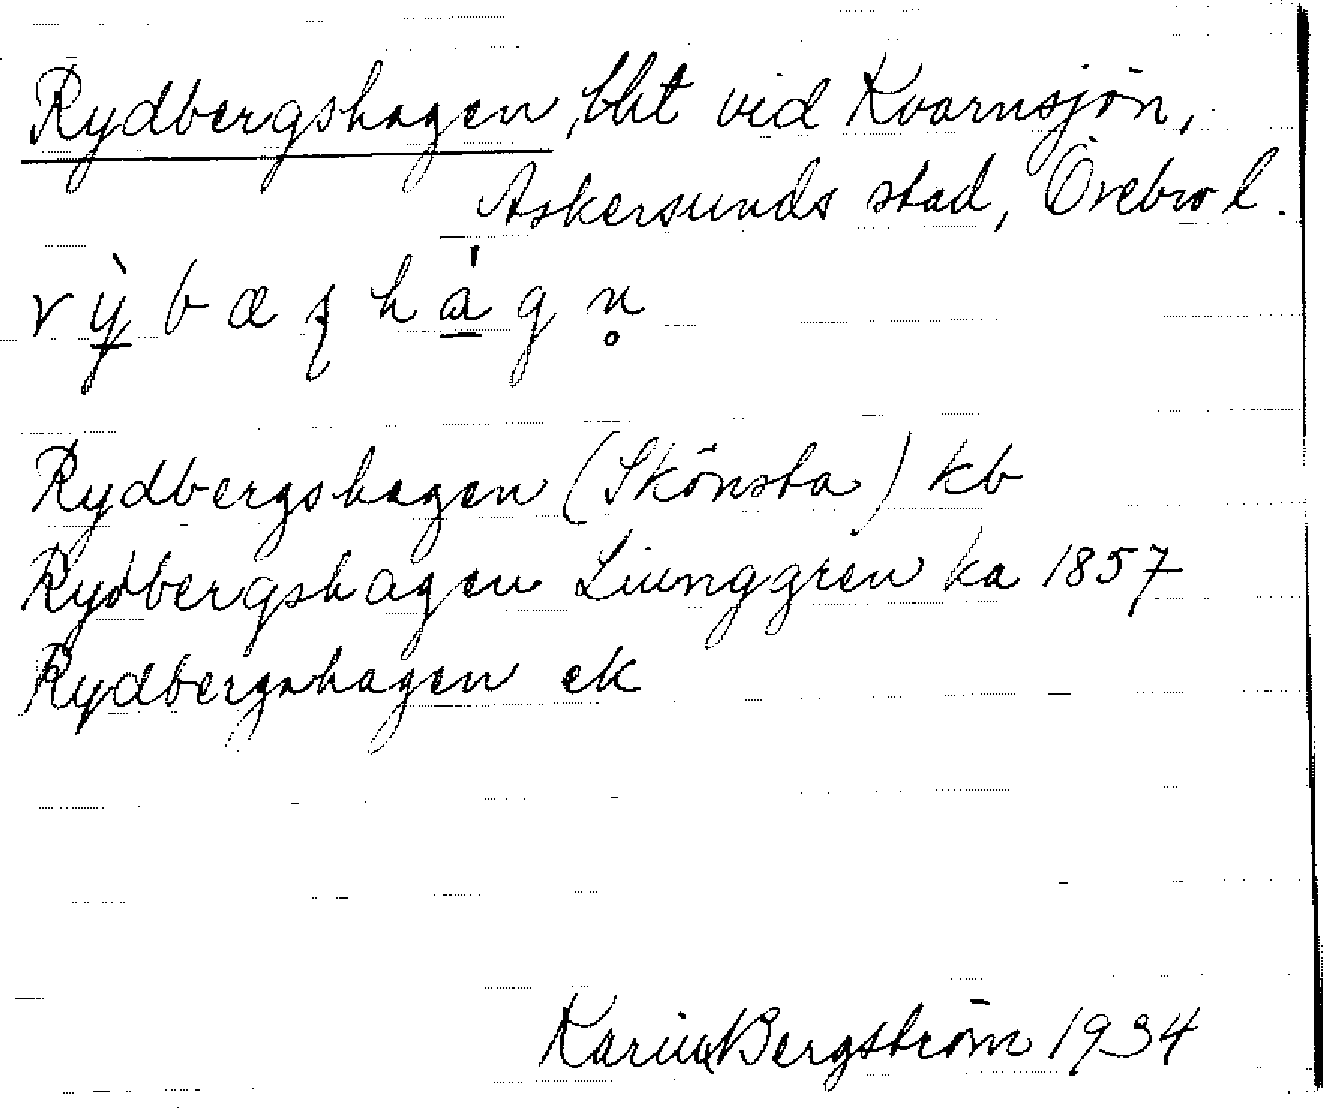 Rydbergshagen, bht vid Kvarnsjön,
Askersunds stad, Örebro l.
r ỳ̲ b æ ʂ h á̲ g n̥
Rydbergshagen (Skönsta) kb
Rydbergshagen Liunggren ka 1857
Rydbergshagen ek
Karin Bergström 1934